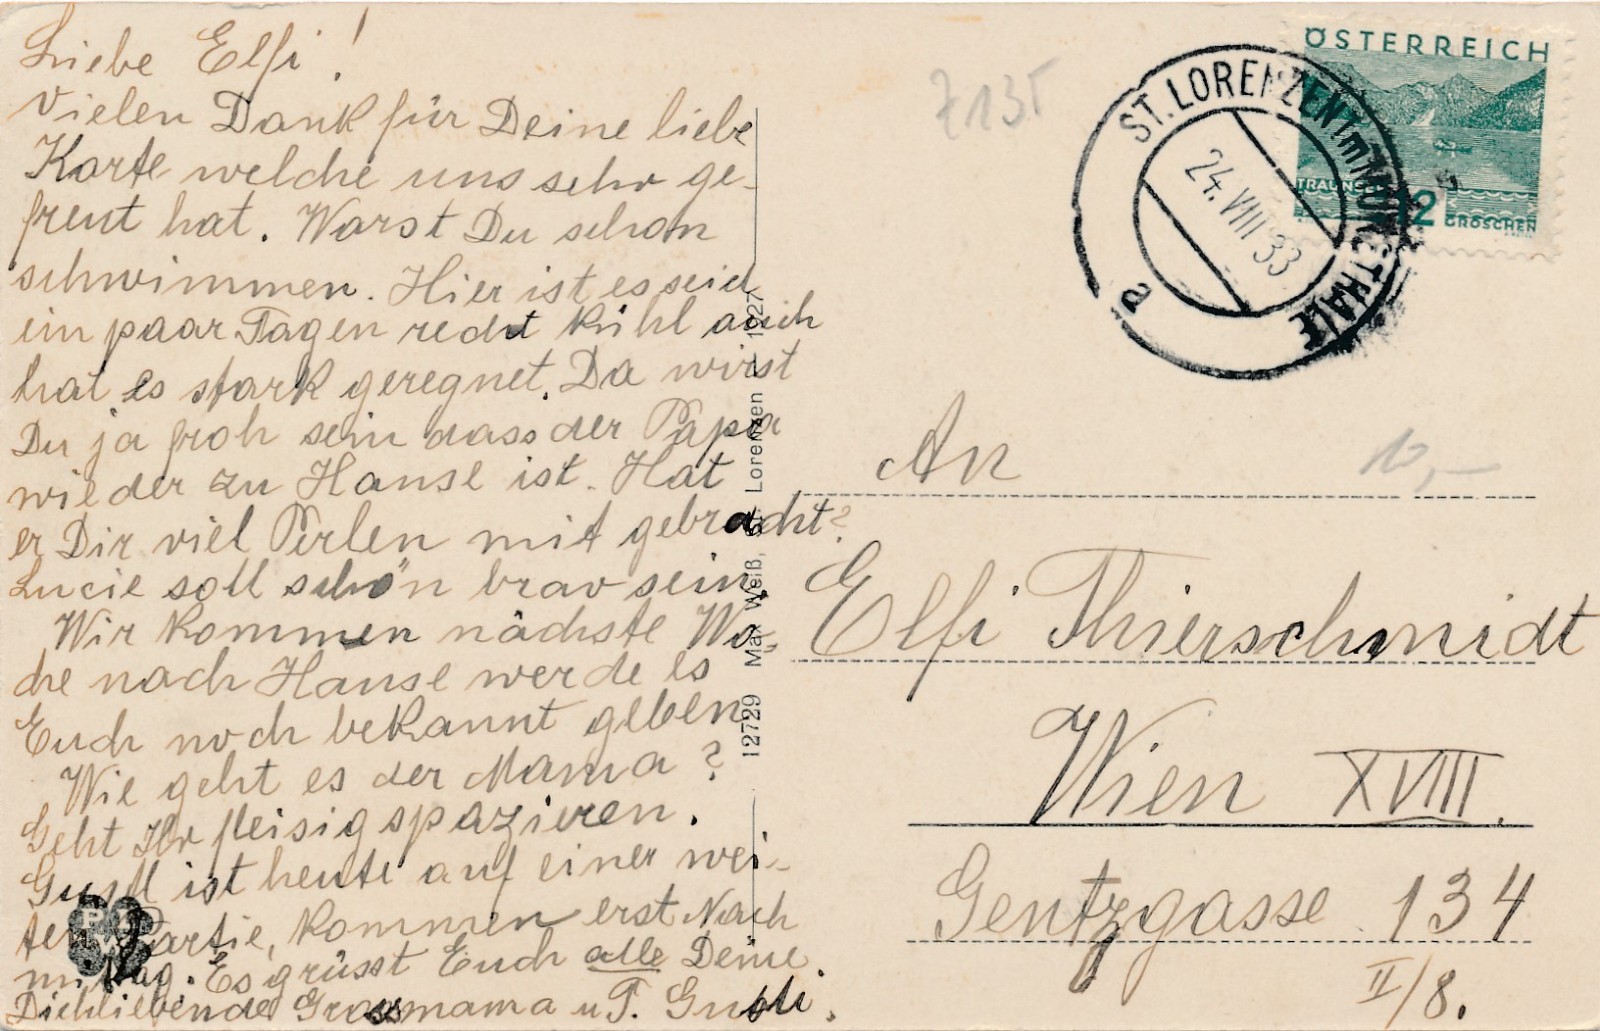 Liebe Elfi!
Vielen Dank für Deine liebe
Karte welche uns sehr ge-
freut hat. Warst Du schon
schwimmen. Hier ist es seid
ein paar Tagen recht kühl auch
hat es stark geregnet. Da wirst
Du ja froh sein dass der Papa
wieder zu Hause ist. Hat
er Dir viel Perlen mit gebracht?
Lucie soll schön brav sein.
Wir kommen nächste Wo-
che nach Hause werde es
Euch noch bekannt geben
Wie geht es der Mama?
Geht Ihr fleisig spazieren.
Gustl ist heute auf einer wei-
ten Partie, kommen erst Nach
mittag. Es grüsst Euch alle Deine
Dichliebende Grossmama u T. Gusti.
12729 Max Weiß, St. Lorenzen 1927
7135
ST. LORENZEN im MÜRZTHALE
24. VIII 33
a
ÖSTERREICH
TRAUNSEE
12 GROSCHEN
10,-
An
Elfi Thierschmidt
Wien XVIII.
Gentzgasse 134
II/8.